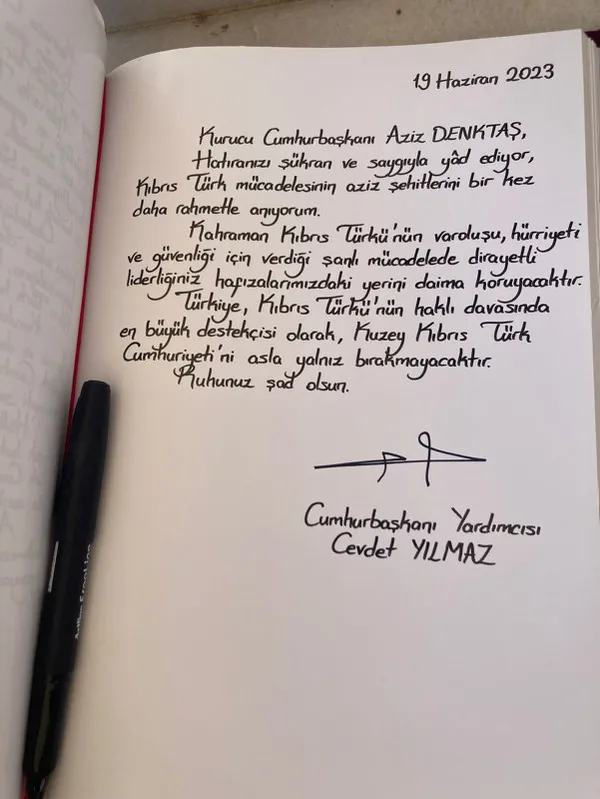 19 Haziran 2023
Kurucu Cumhurbaşkanı Aziz DENKTAŞ,
Hatıranızı şükran ve saygıyla yâd ediyor,
Kıbrıs Türk mücadelesinin aziz şehitlerini bir kez
daha rahmetle anıyorum.
Kahraman Kıbrıs Türkü'nün varoluşu, hürriyeti
ve güvenliği için verdiği şanlı mücadelede dirayetli
liderliğiniz hapızalarımızdaki yerini daima koruyacaktır.
Türkiye, Kıbrıs Türkü'nün haklı davasında
en büyük destekçisi olarak, Kuzey Kıbrıs Türk
Cumhuriyeti'ni asla yalnız bırakmayacaktır.
Ruhunuz şad olsun.
Cumhurbaşkanı Yardımcısı
Cevdet YILMAZ